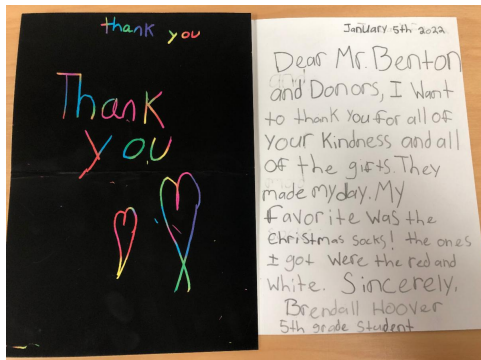 thank you
Thank
you
January 5th 2022
Dear Mr. Benton
and Donors, I want
to thank you for all of
your kindness and all
of the gifts. They
made my day. My
favorite was the
christmas socks! the ones
I got were the red and
white. Sincerely,
Brendall Hoover
5th grade student